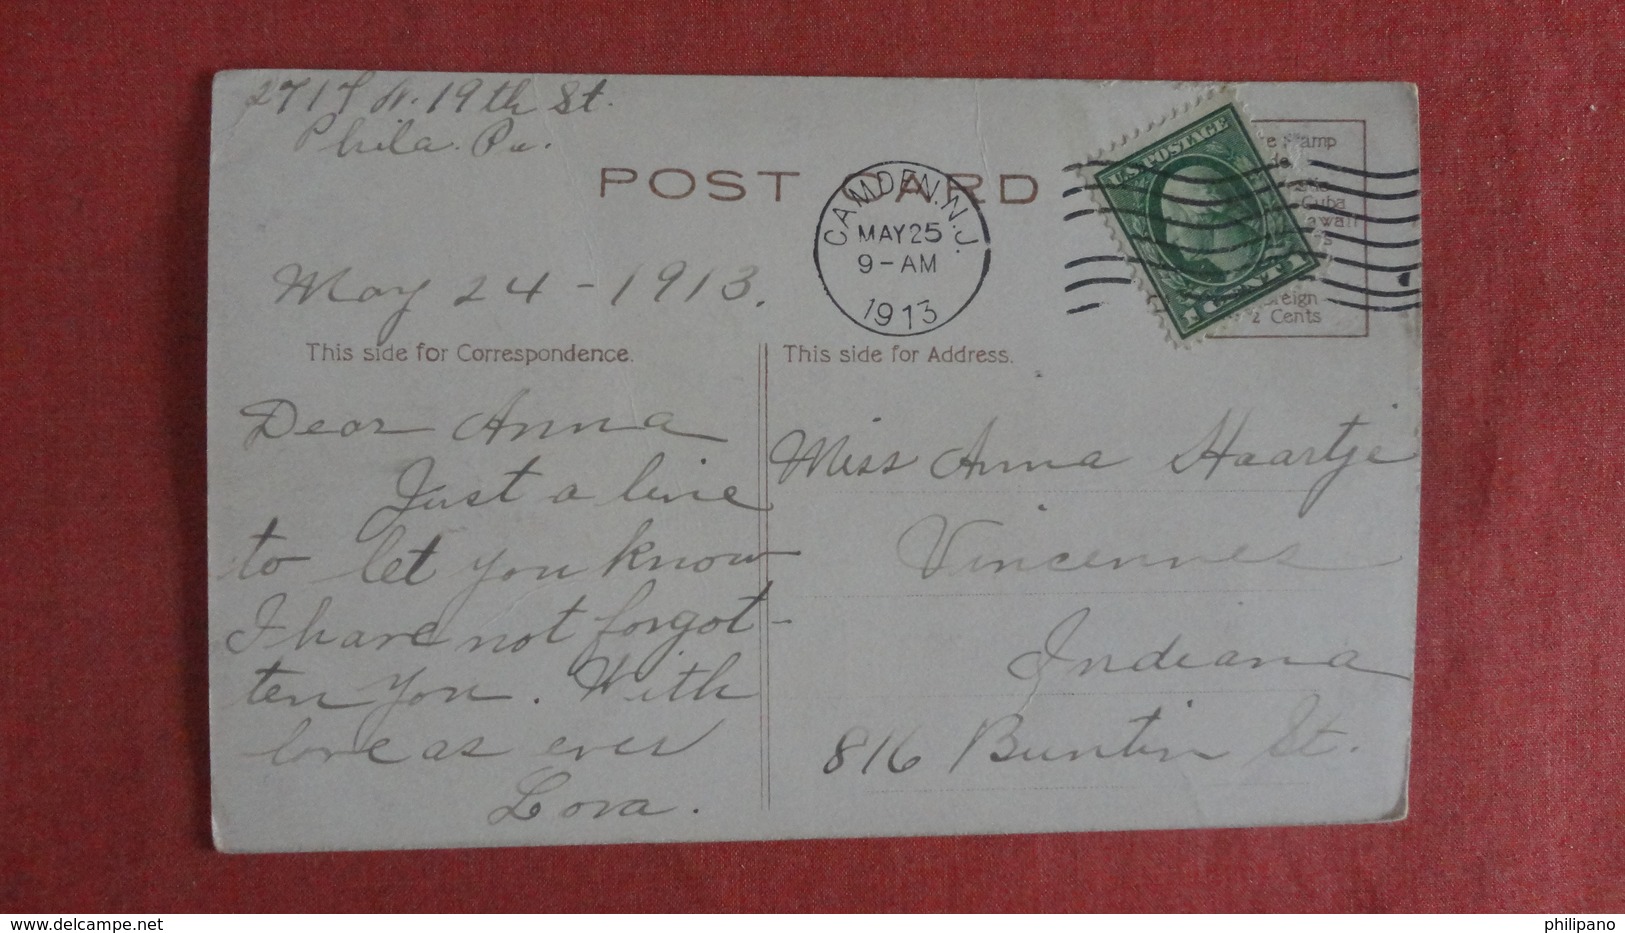 N. 19th St.
Phila. Pa.
POST CARD
CAMDEN. N.J.
MAY 25
9-AM
1913
U.S. POSTAGE
1 CENT 1
Stamp
Cuba
Cents
May 24 - 1913.
This side for Correspondence.
This side for Address.
Dear Anna
Just a line
to let you know
I have not forgot-
ten you. With
love as ever
Lora.
Miss Anna Haartje
Vincennes
Indiana
816 Buntin St.
www.delcampe.net
philipano